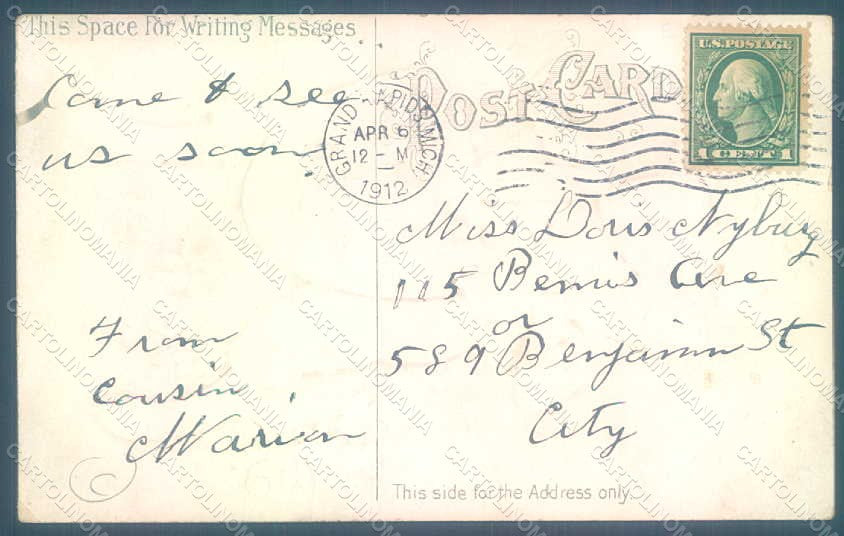 This Space For Writing Messages
POST CARD
U.S. POSTAGE
1 CENT 1
GRAND RAPIDS, MICH.
APR 6
12 - M
1912
Come & see
us soon
From
Cousin
Marion
Miss Doris Nyburg
115 Bemis Ave
or
589 Benjamin St
City
This side for the Address only.
CARTOLINOMANIA